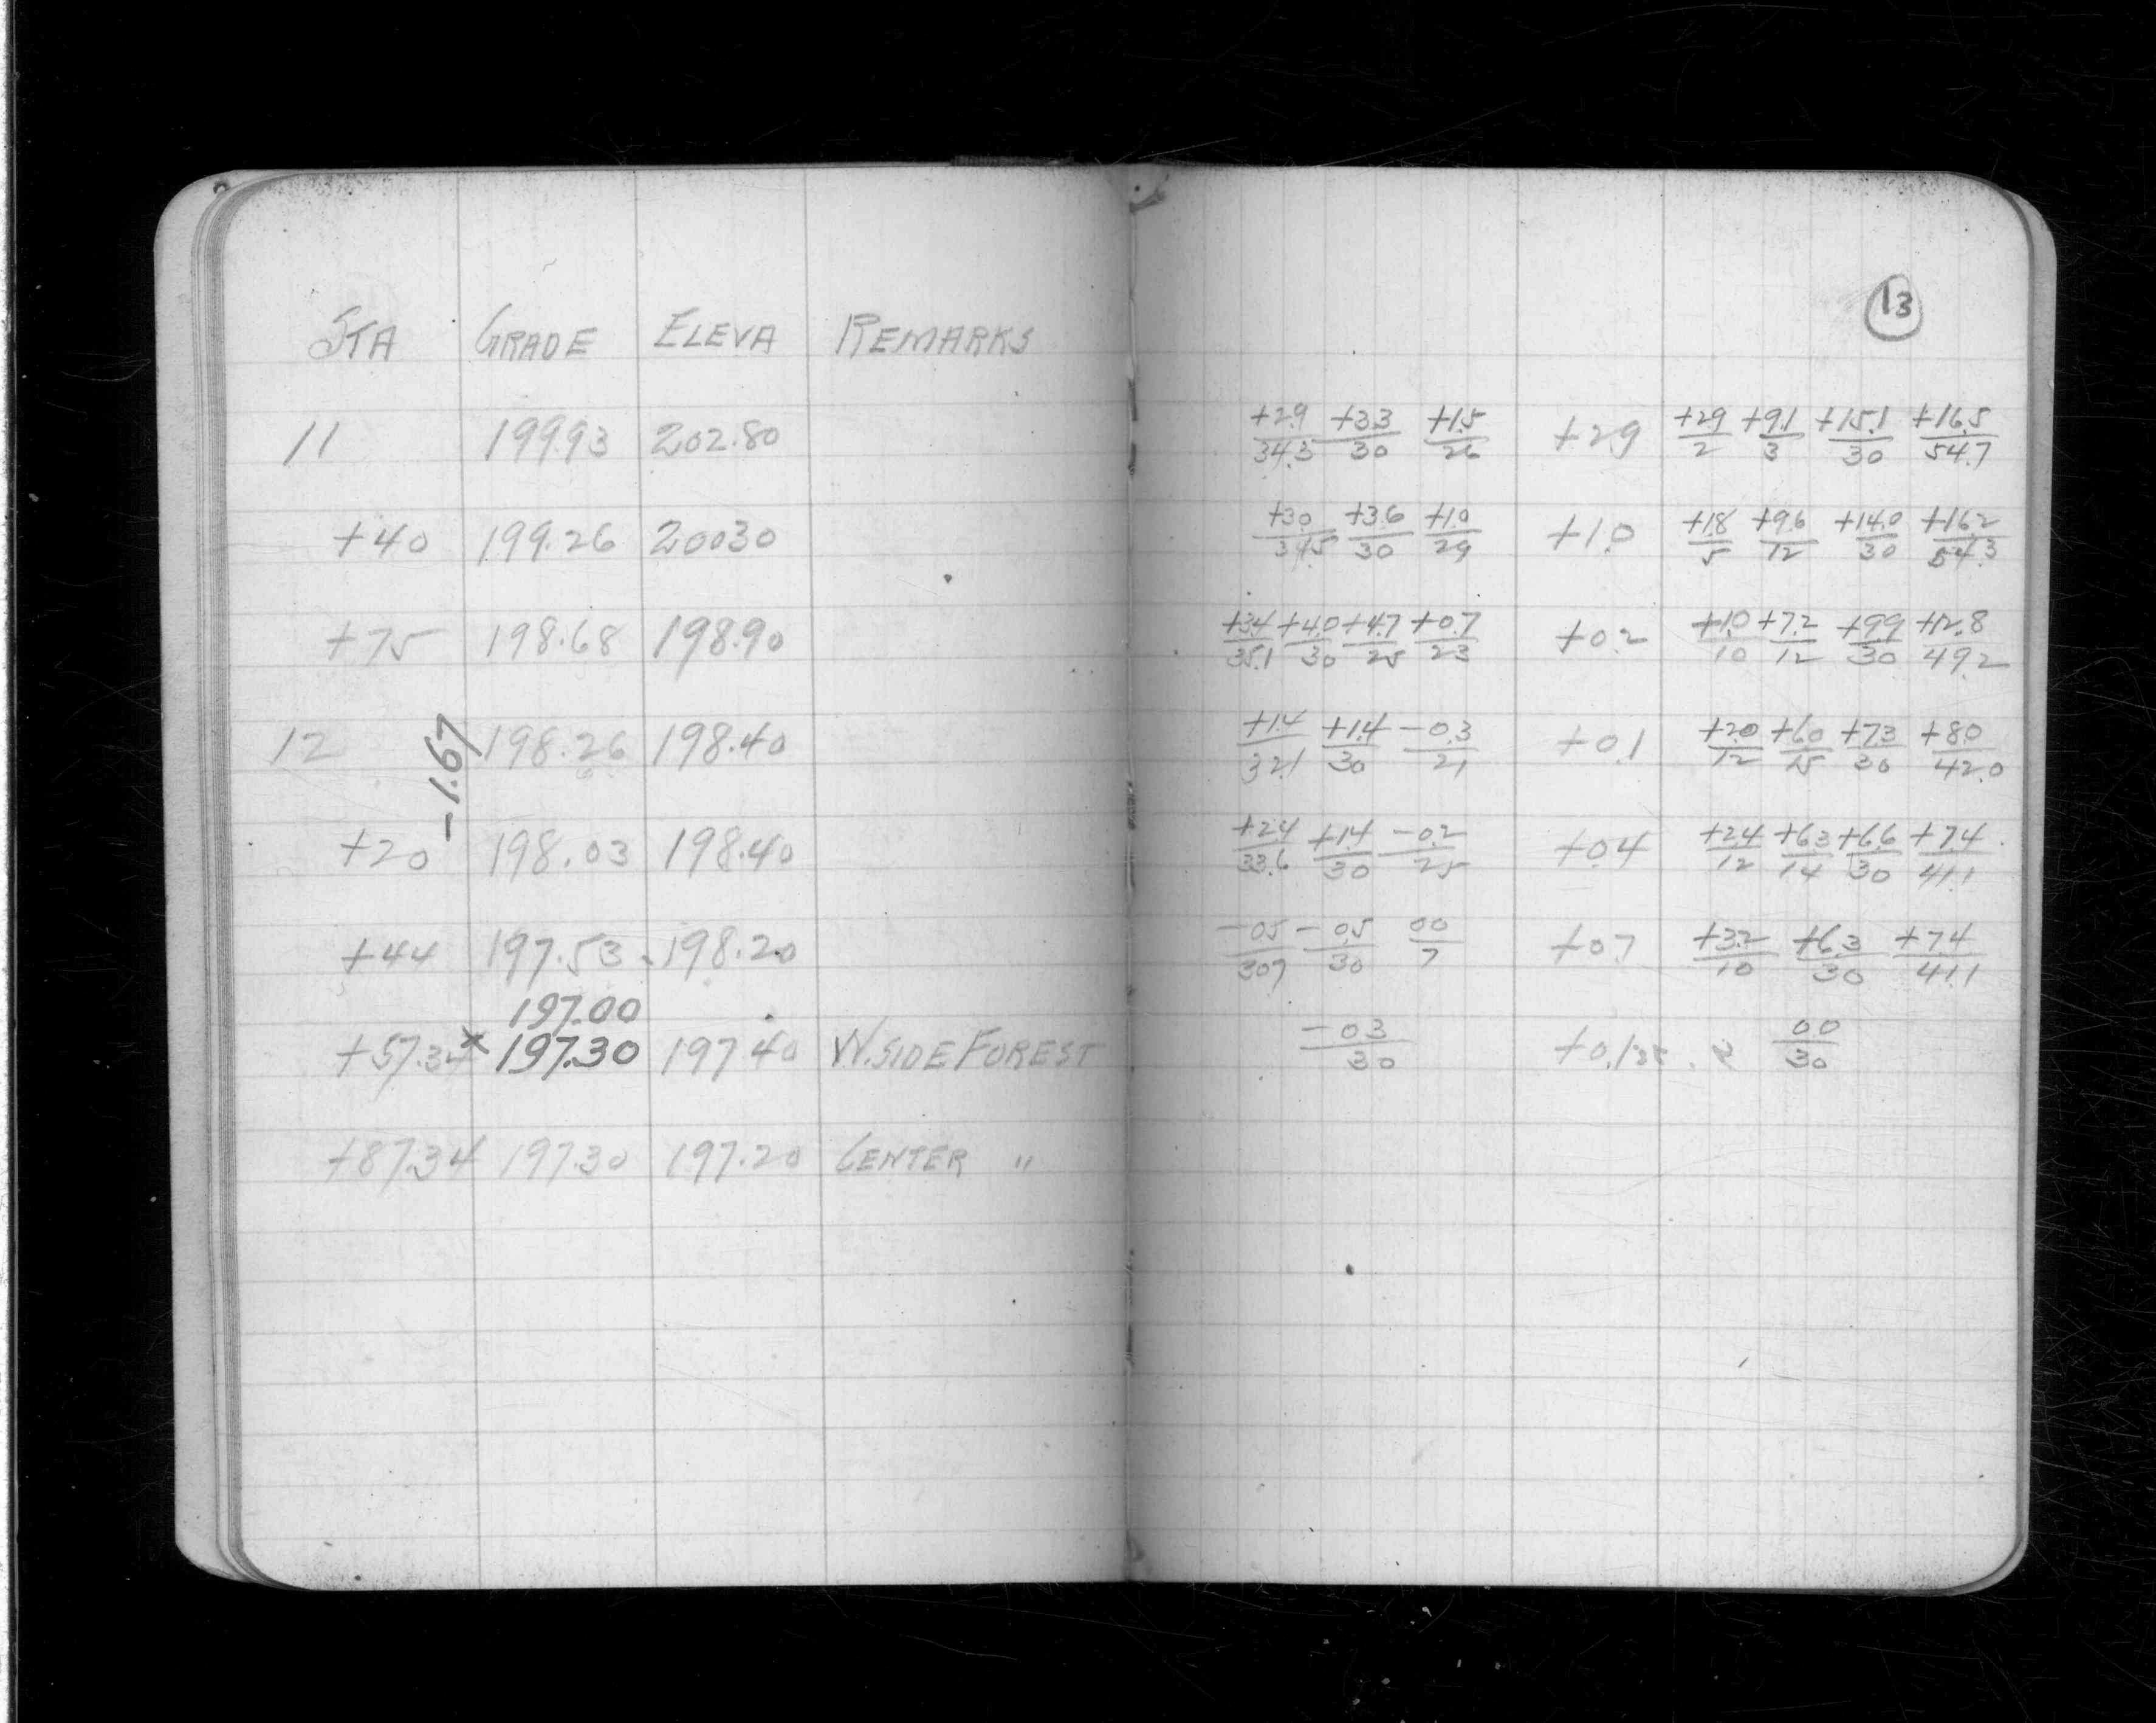 13
STA GRADE ELEVA REMARKS
11 199.93 202.80 +2.9/34.3 +3.3/30 +1.5/26 +2.9 +2.9/2 +9.1/3 +15.1/30 +16.5/54.7
+40 199.26 200.30 +3.0/34.5 +3.6/30 +1.0/29 +1.0 +1.8/5 +9.6/12 +14.0/30 +16.2/54.3
+75 198.68 198.90 +3.4/35.1 +4.0/30 +4.7/25 +0.7/23 +0.2 +1.0/10 +7.2/12 +9.9/30 +12.8/49.2
12 198.26 198.40 +1.4/32.1 +1.4/30 -0.3/21 +0.1 +2.0/12 +6.0/15 +7.3/30 +8.0/42.0
-1.67
+20 198.03 198.40 +2.4/33.6 +1.4/30 -0.2/25 +0.4 +2.4/12 +6.3/14 +6.6/30 +7.4/41.1
+44 197.53 198.20 -0.5/30.7 -0.5/30 00/7 +0.7 +3.2/10 +6.3/30 +7.4/41.1
197.00
+57.34 x 197.30 197.40 W. SIDE FOREST -0.3/30 00/30
+87.34 197.30 197.20 CENTER "